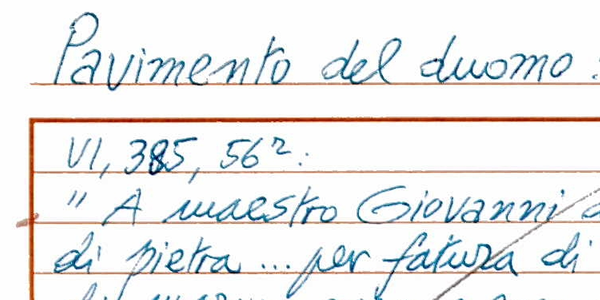 Pavimento del duomo:
VI, 385, 56r:
" A maestro Giovanni
di pietra ... per fatura di